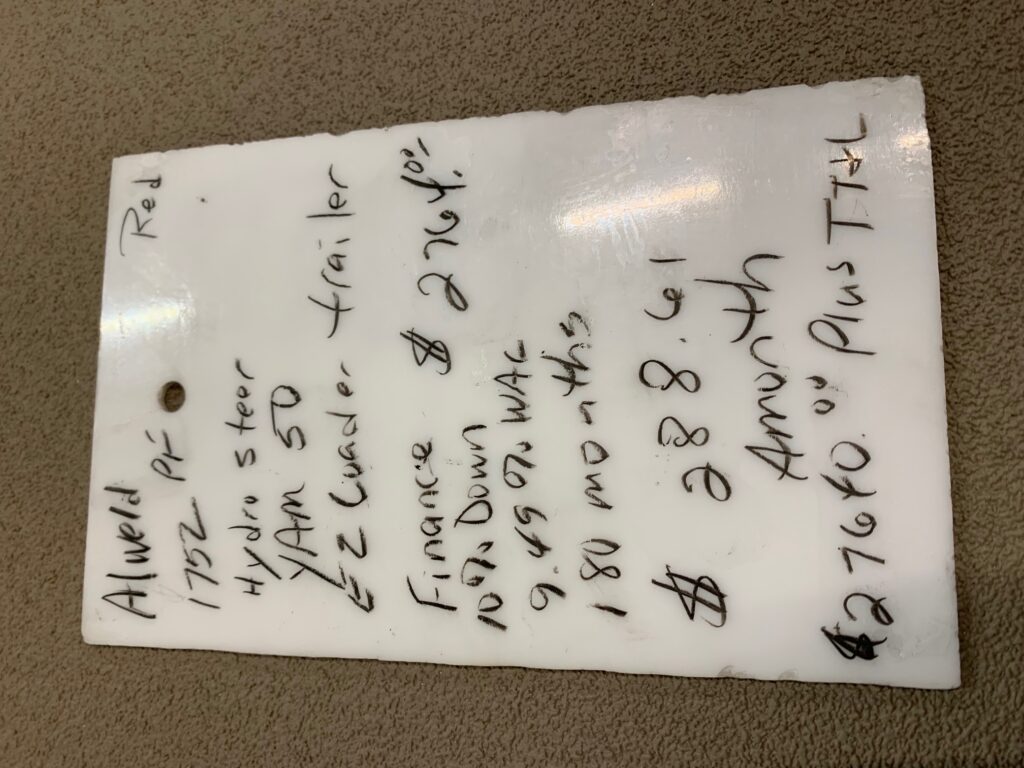 Alweld Red
1752 PF
Hydro steer
YAM 50
EZ Loader trailer
Finance $ 27640.00
10% Down
9.49% WAC
180 months
$ 288.61
Amonth
$27640.00 Plus TT&L